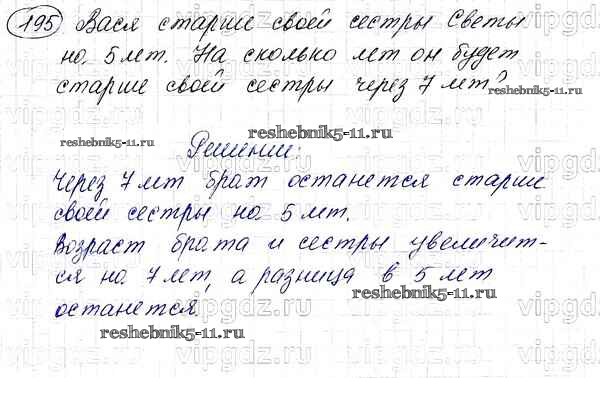 195 Вася старше своей сестры Светы
на 5 лет. На сколько лет он будет
старше своей сестры через 7 лет?
reshebnik5-11.ru
reshebnik5-11.ru
reshebnik5-11.ru
Решение:
Через 7 лет брат останется старше
своей сестры на 5 лет.
Возраст брата и сестры увеличит-
ся на 7 лет, а разница в 5 лет
reshebnik5-11.ru
останется.
reshebnik5-11.ru
vipgdz.ru